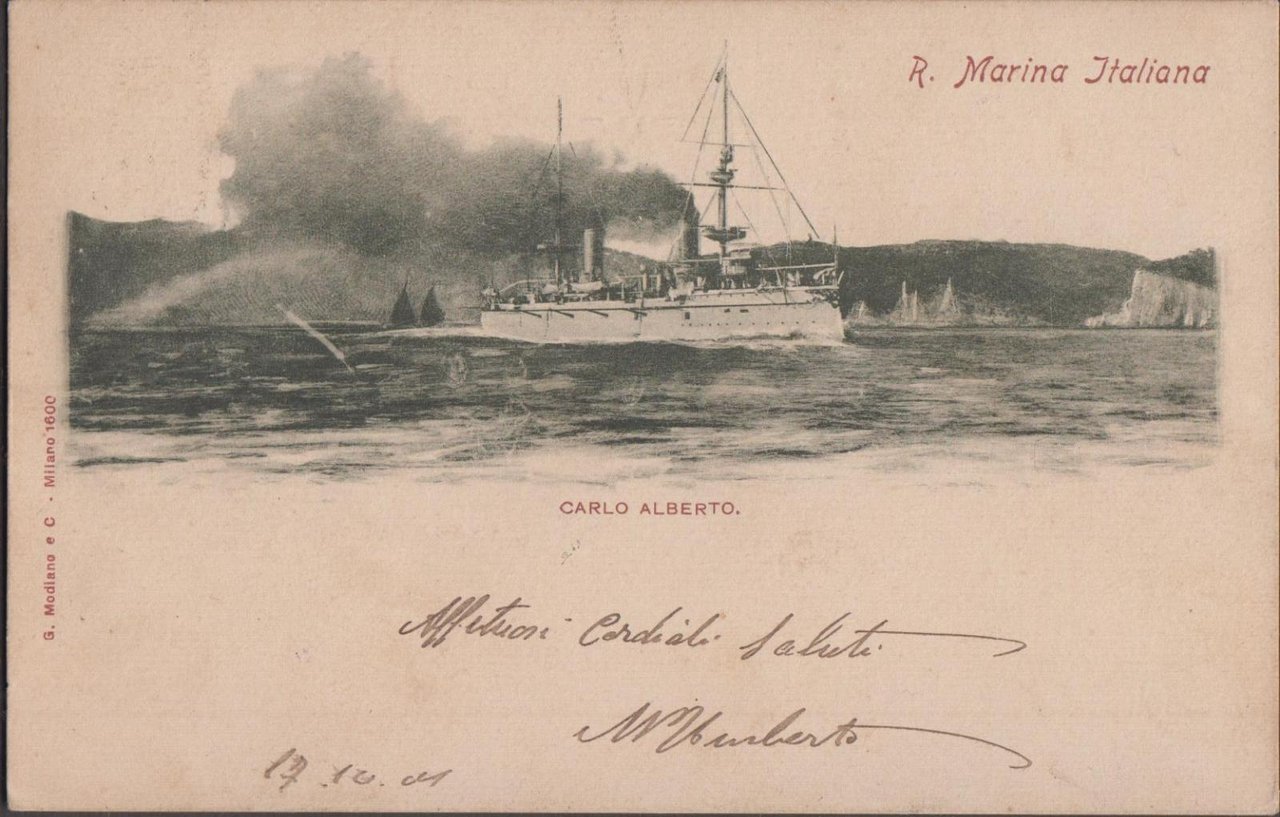 R. Marina Italiana
G. Modiano e C - Milano 1600
CARLO ALBERTO.
Affettuosi Cordiali Saluti
Umberto
17.10.01